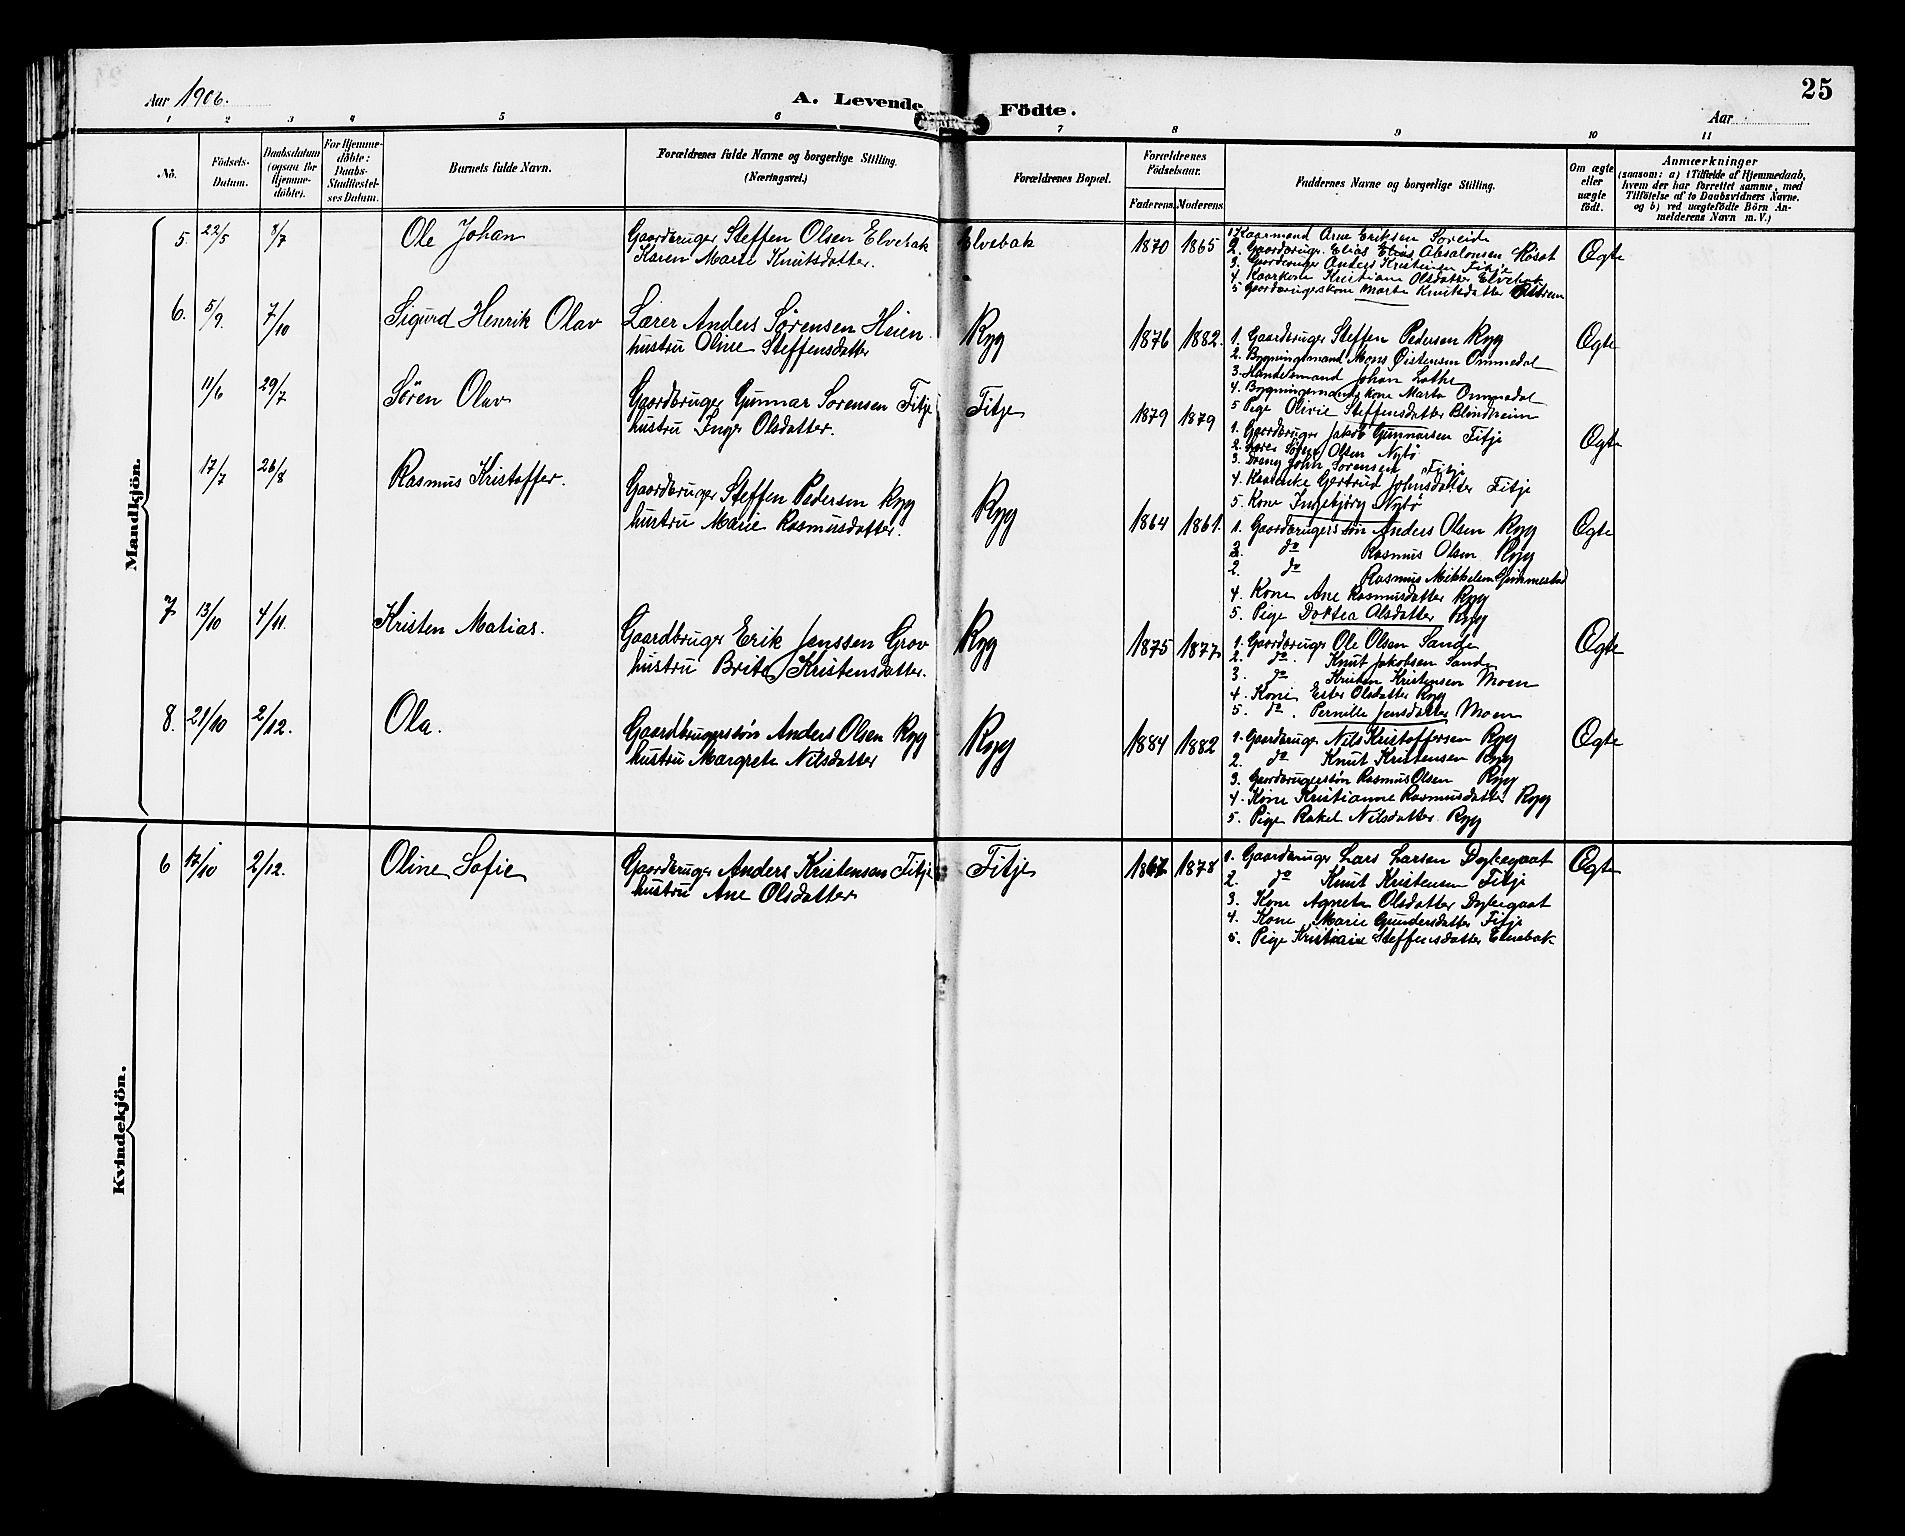 25
Aar 1906. A. Levende Födte. Aar
1 2 3 4 5 6 7 8 9 10 11
No.
Födsels-Datum.
Daabsdatum (ogsaa for Hjemme-döbte).
For Hjemme-döbte: Daabs-Stadfæstel-ses Datum.
Barnets fulde Navn.
Forældrenes fulde Navne og borgerlige Stilling.
(Næringsvei.)
Forældrenes Bopæl.
Forældrenes Födselsaar.
Faderens. Moderens.
Faddernes Navne og borgerlige Stilling.
Om ægte eller uægte födt.
Anmærkninger
(saasom: a) i Tilfælde af Hjemmedaab,
hvem der har forrettet samme, med
Tilföielse af to Daabsvidners Navne.
og b) ved uægtefödte Börn An-
melderens Navn m. V.)
Mandkjön.
5. 22/5 8/7 Ole Johan
Gaardbruger Steffen Olsen Elvebak
Karen Marie Knutsdatter.
Elvebak 1870 1865
1. Kaarmand Arne Eriksen Soreide
2. Gaardbruger Elias Absalonsen Höset
3. Gaardbruger Anders Kristensen Fitje
4. Kaarkone Kristiane Olsdatter Elvebak
5 Gaardbrugerskone Marta Knutsdatter
Ogte
6. 5/9. 7/10 Sigurd Henrik Olav
Lærer Anders Sørensen Heien
hustru Oline Steffensdatter
Ryg 1876 1882.
1. Gaardbruger Steffen Pedersen Ryg
2. Bygningsmand Mons Öistensen Ommedal
3. Handelsmand Johan Lothe
4. Bygningsmandskone Marta Ommedal
5 Pige Olivie Steffensdatter Blindheim
Ogte
11/6 29/7 Søren Olav
Gaardbruger Gunnar Sorensen Fitje
hustru Inger Olsdatter.
Fitje 1879 1879
1. Gaardbruger Jakob Gunnarsen Fitje
2. Lærer Søren Olsen Nytø
3. Dreng John Sorensen Fitje
4. Kaarenke Gertrud Johnsdatter Fitje
5. Kone Ingebjörg Nytø
Ogte
17/7 26/8 Rasmus Kristoffer.
Gaardbruger Steffen Pedersen Ryg
hustru Marie Rasmusdatter.
Ryg 1864 1861.
1. Gaardbrugerssøn Anders Olsen Ryg
2. do Rasmus Olsen Ryg
2. do Rasmus Mikkelsen Gimmestad
4. Kone Ane Rasmusdatter Ryg
5. Pige Dortea Olsdatter Ryg
Ogte
7 13/10 4/11. Kristen Matias.
Gaardbruger Erik Jenssen Grov
hustru Brite Kristensdatter.
Ryg 1875 1877
1. Gaardbruger Ole Olsen Sande
2. do. Knut Jakobsen Sande
3. do Kristen Kristensen Moen
4. Kone Ester Olsdatter Ryg
5. do. Pernille Jensdatter Moen
Ogte
8. 21/10 2/12. Ola.
Gaardbrugerssön Anders Olsen Ryg
hustru Margrete Nilsdatter
Ryg 1884 1882
1. Gaardbruger Nils Kristoffersen Ryg
2. do Knut Kristensen Ryg
3. Gaardbrugerssön Rasmus Olsen Ryg
4. Kone Kristianne Rasmusdatter Ryg
5. Pige Rakel Nilsdatter. Ryg
Ogte
Kvindekjön.
6 17/10 2/12. Oline Sofie
Gaardbruger Anders Kristensen Fitje
hustru Ane Olsdatter
Fitje 1867 1878
1. Gaardbruger Lars Larsen Dybegaat
2. do Knut Kristensen Fitje
3. Kone Agneta Olsdatter Dybegaat
4. Kone Marie Gundersdatter Fitje
5. Pige Kristiane Steffensdatter Elvebak
Ogte